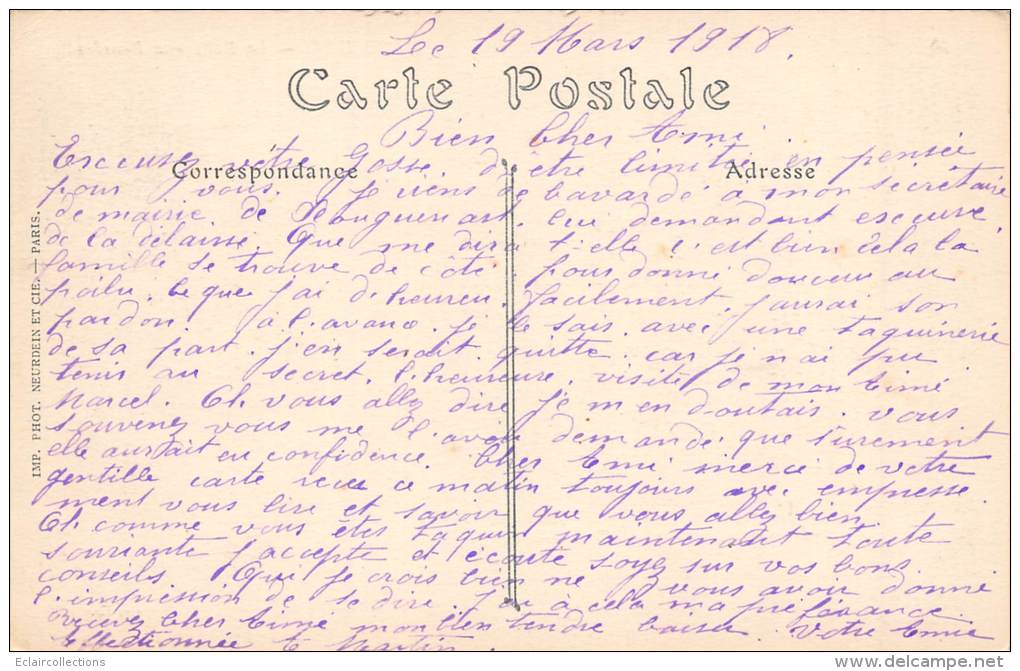 Le 19 Mars 1918.
Carte Postale
Bien Cher Ami.
Correspondance
Adresse
Excusez votre Gosse. d'être limité en pensée
pour vous. Je viens de bavardé à mon secrétaire
de mairie. de lui demandant excuse
de la délaissé. Que me dira t'elle c'est bien cela la
famille se trouve de côté. pour donné douceur au
poilu. Ce que j'ai d'heureu. facilement j'aurai son
pardon. à l'avance. je le sais. avec une taquinerie
de sa part. j'en serait quitte. car je n'ai pu
tenir au secret. l'heureuse. visite de mon Aimé
Marcel. Oh vous allez dire je m'en doutais. vous
souvenez vous me l'avez demandé que surement
elle aurait eu confidence. Cher Ami merci de votre
gentille carte recue ce matin toujours avec empresse
ment vous lire et savoir que vous allez bien.
Et comme vous êtes taquin maintenant toute
souriante j'accepte et écoute soyez sur vos bons
conseils. Qui je crois bien ne vous avoir donné
l'impression de se dire. j'ai à cela ma préférance
Recevez Cher Aimé mon bien tendre baiser. Votre Amie
Affectionnée Martin.
IMP. PHOT. NEURDEIN ET CIE. — PARIS.
Eclaircollections
delcampe.net